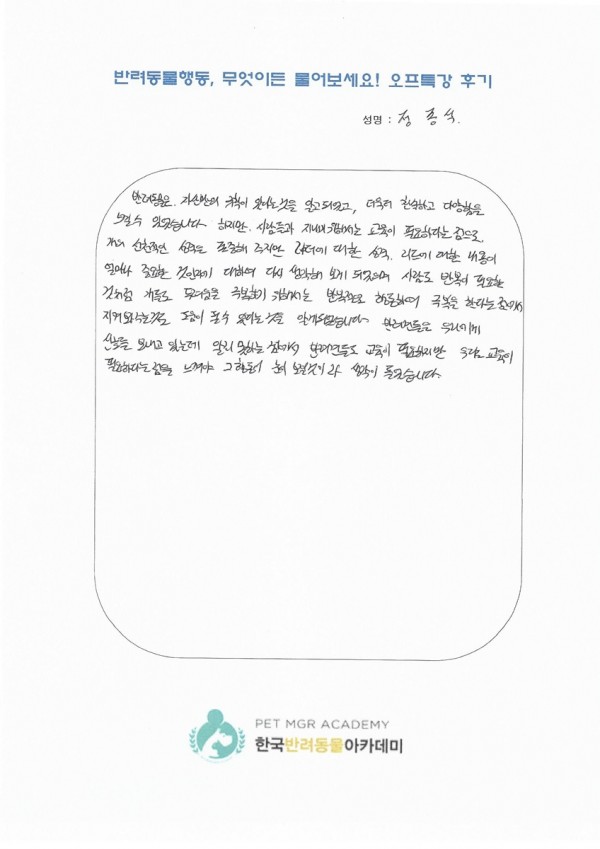 반려동물행동, 무엇이든 물어보세요! 오프특강 후기
성명 : 정 종 식.
반려동물은. 자신만의 규칙이 있다는것을 알고 되었고, 더욱더 친숙하고 다양함을
느낄수 있었습니다. 하지만. 사람들과 지내기 위해서는 교육이 필요하다는 점으로.
개의 선천적인 성격은 존중해 주지만 리더에 대한 성격. 리드에 대한 내용이
얼마나 중요한 것인지에 대하여 다시 생각해 보게 되었으며 사람도 반복이 필요한
것처럼 개들도 무서움을 극복하기 위해서는 반복적으로 학습하여 극복을 한다는 점에서
지켜보는것도 도움이 될수 있다는것을 알게되었습니다. 반려견들은 우리에게
신호를 보내고 있는데 알지 못하는 점에서 반려견들도 교육이 필요하지만 우리도 교육이
필요하다는 점을 느껴야 그 행동이 눈에 보일것이라 생각이 들었습니다.
PET MGR ACADEMY
한국반려동물아카데미